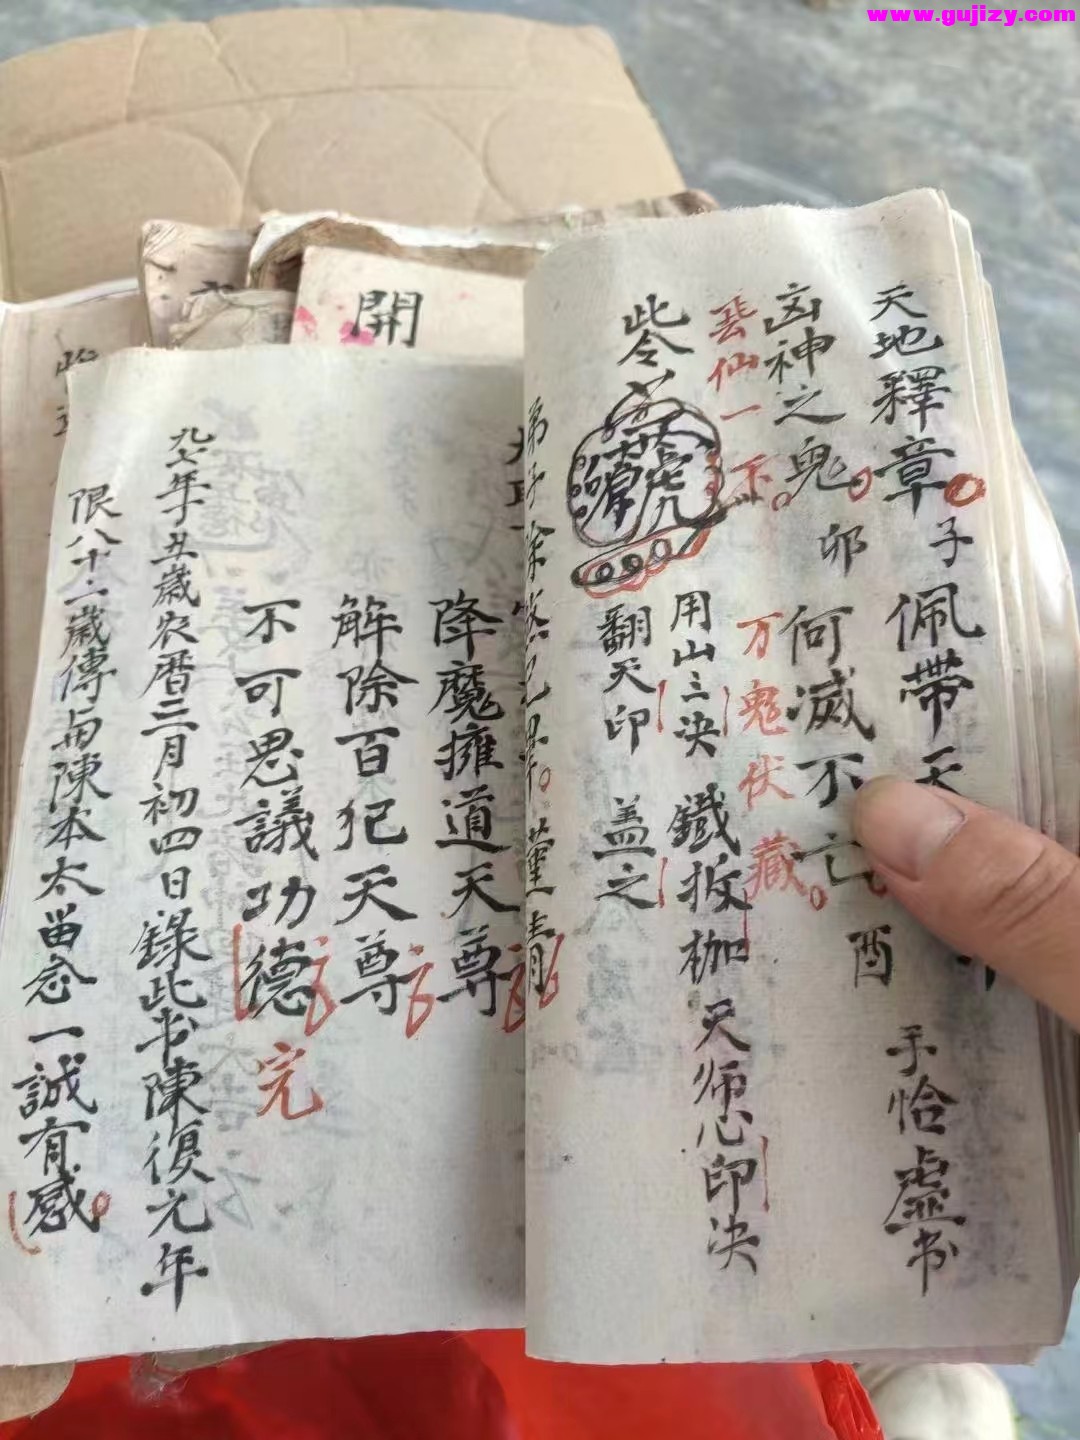 www.gujizy.com
開
天地釋章。子佩帶天
手恰虛书
凶神之鬼。卯何滅不亡
酉
仙一下。万鬼伏藏。
此令
用山三决鐵扳枷天师心印决
翻天印盖之
弟子
降魔擁道天尊
解除百犯天尊
不可思議功德
完
九七年丁丑歲农曆三月初四日錄此书陳復元年
限八十二歲傳与陳本太留念一誠有感。